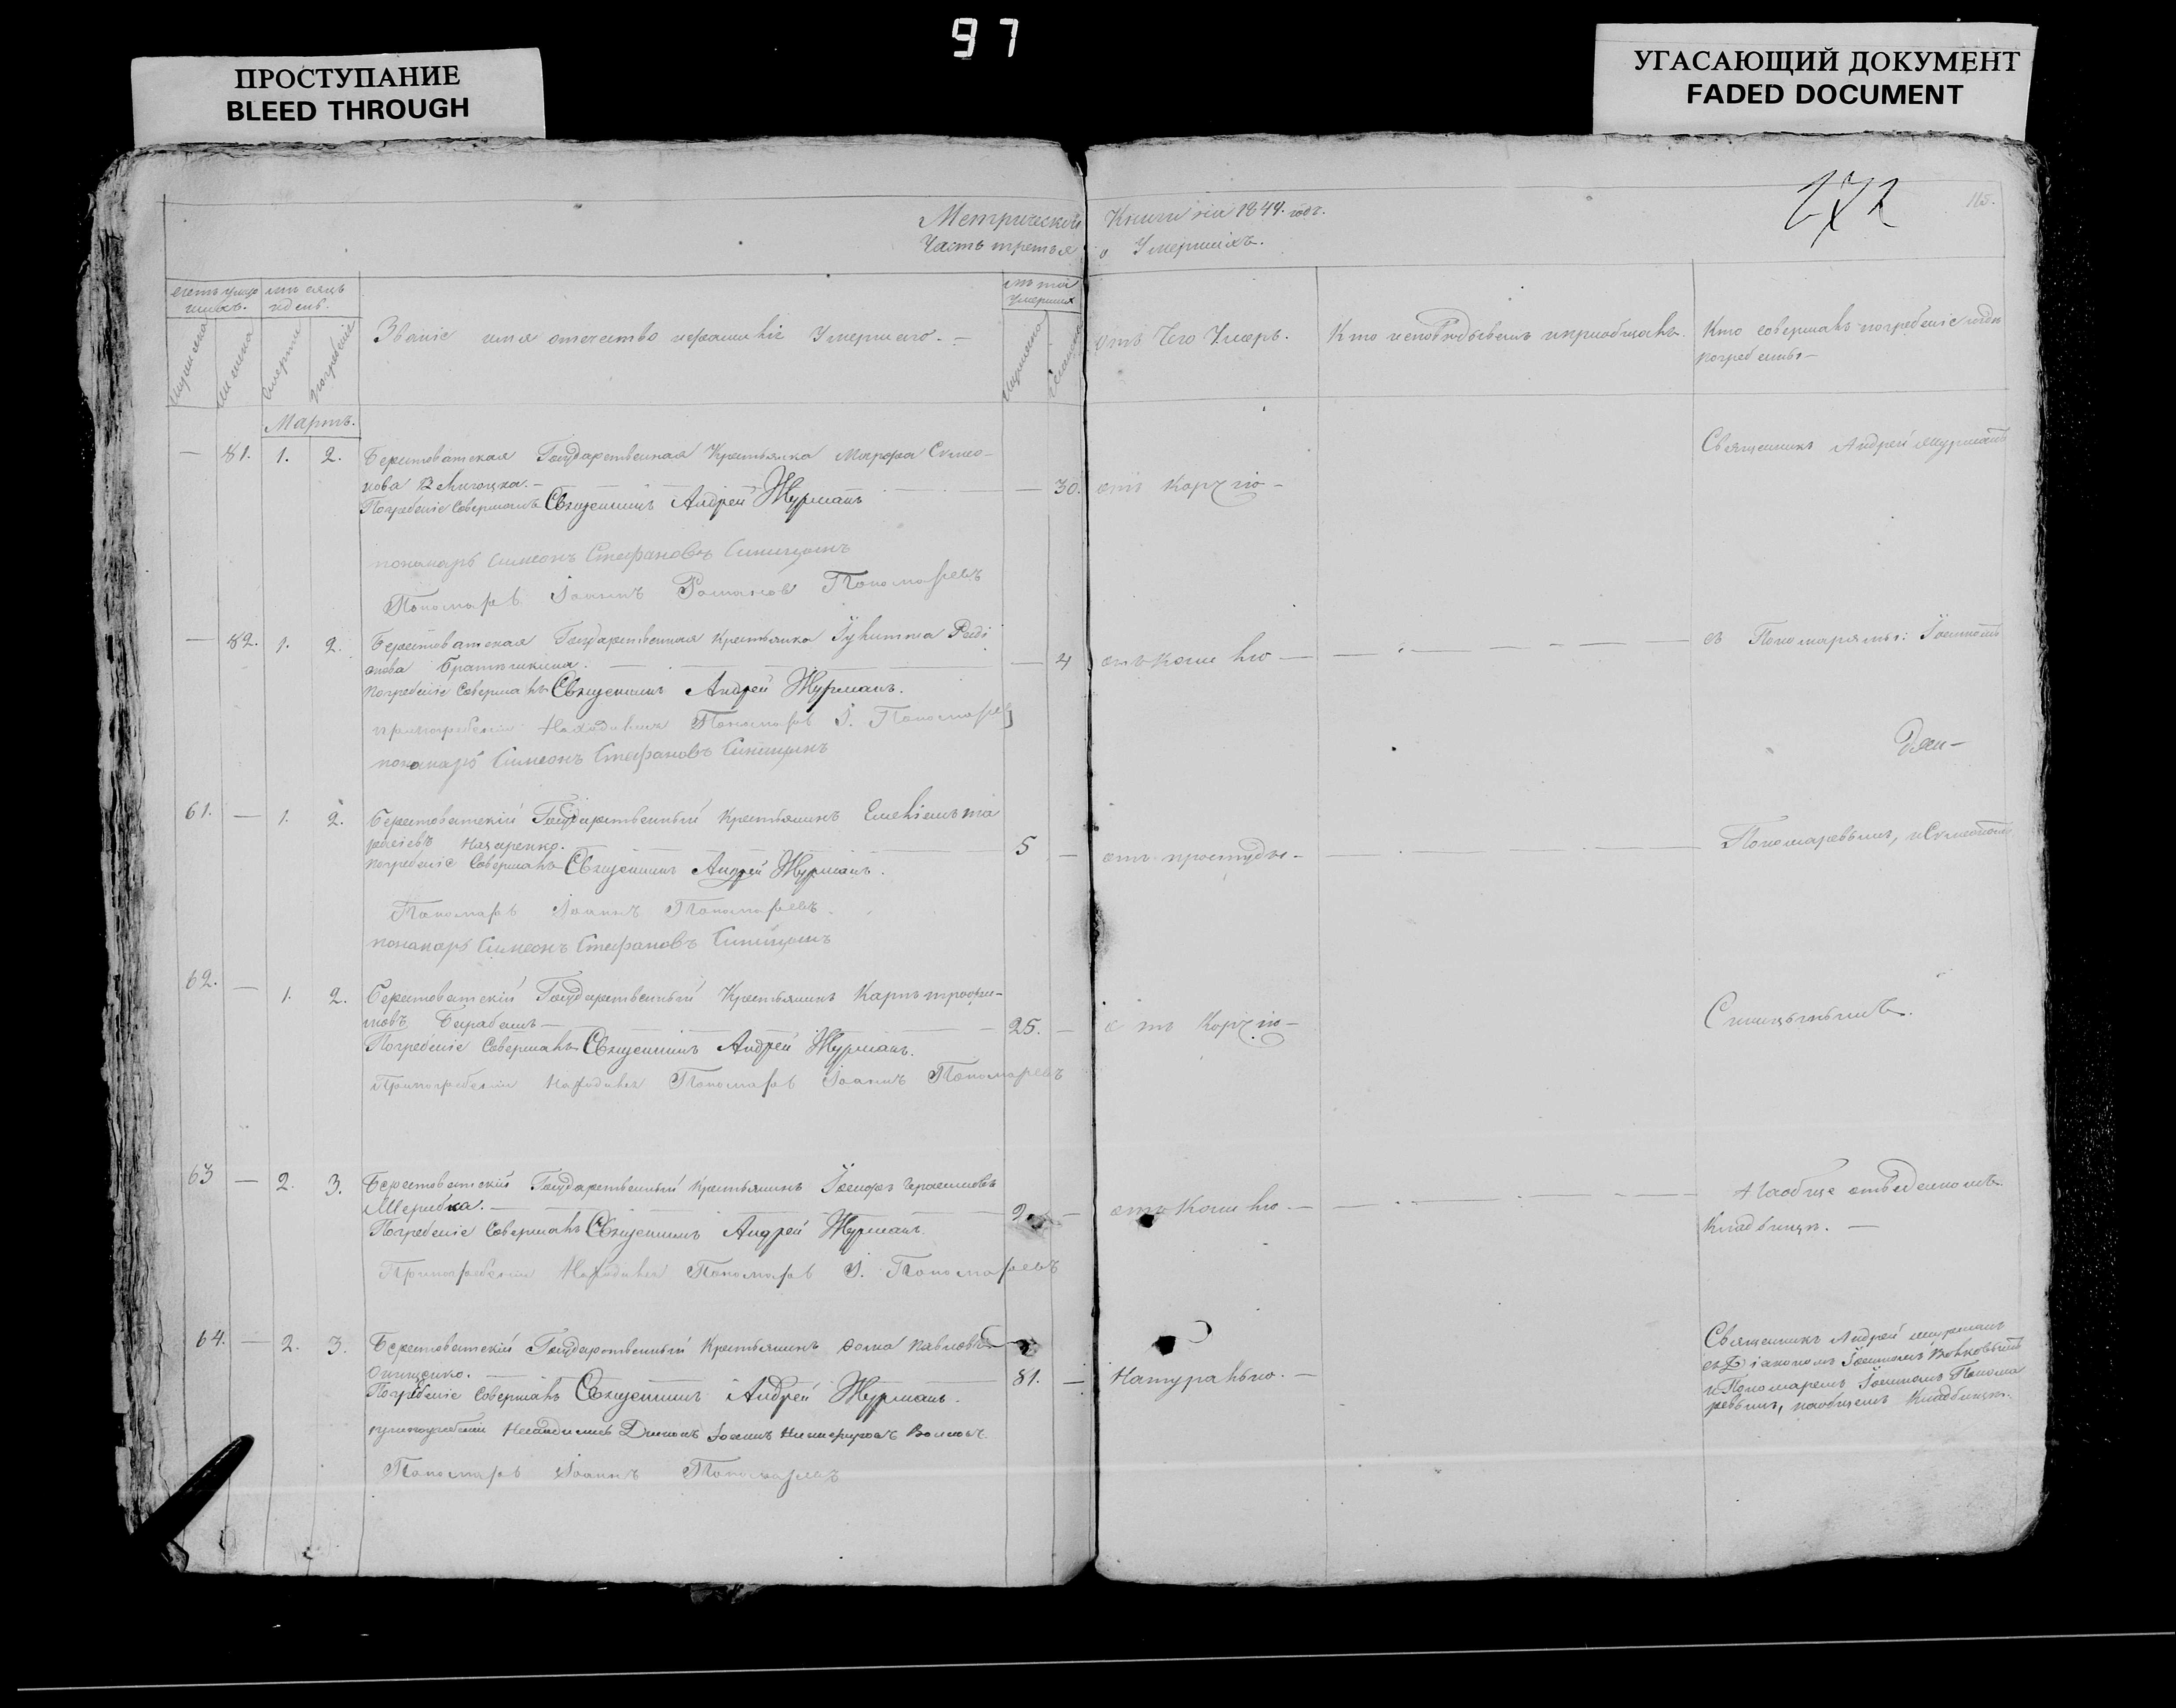 97
ПРОСТУПАНИЕ
BLEED THROUGH
УГАСАЮЩИЙ ДОКУМЕНТ
FADED DOCUMENT
115.
Метрической Книги на 1844. годъ.
Часть третья о Умершихъ.
Мужеска
Женска
Смерти
Погребенія
Званіе имя отечество и фамиліе Умершаго. —
Лѣта Умершихъ
отъ Чего Умеръ.
Кто исповѣдывалъ и пріобщалъ.
Кто совершалъ погребеніе и гдѣ
погребены —
Мартъ.
— 81. 1. 2. Берестоватская Государственная Крестьянка Марфа Симео-
нова — 30.
Погребеніе Совершалъ Священникъ Андрей Журманъ
пономарь Симеонъ Стефановъ Синицынъ
Пономарь Іоаннъ Романовъ Пономаревъ
Священникъ Андрей Журманъ
— 82. 1. 2. Берестоватская Государственная Крестьянка Іулитта Роді
онова — 4 отъ Кашлю —
погребеніе Совершалъ Священникъ Андрей Журманъ.
при погребеніи Находился Пономарь І. Пономаревъ
пономарь Симеонъ Стефановъ Синицынъ
съ Пономарями: Іоанномъ
61. — 1. 2. Берестоватскій Государственный Крестьянинъ
Назаренко. 5 — отъ простуды —
погребеніе Совершалъ Священникъ Андрей Журманъ.
Пономарь Іоаннъ Пономаревъ.
пономарь Симеонъ Стефановъ Синицынъ
Пономаревымъ, и Симеономъ
62. — 1. 2. Берестоватскій Государственный Крестьянинъ Карпъ Трофи-
мовъ 25. —
Погребеніе Совершалъ Священникъ Андрей Журманъ.
При погребеніи Находился Пономарь Іоаннъ Пономаревъ
Синицынымъ.
63 — 2. 3. Берестоватскій Государственный Крестьянинъ Іосифъ Герасимовъ
— отъ Кашлю. —
Погребеніе Совершалъ Священникъ Андрей Журманъ.
При погребеніи Находился Пономарь І. Пономаревъ
Кладбищѣ. —
64. — 2. 3. Берестоватскій Государственный Крестьянинъ Фома Павловъ
Онищенко. 81. — Натурально. —
Погребеніе Совершалъ Священникъ Андрей Журманъ.
Пономарь Іоаннъ Пономаревъ
Священникъ Андрей Журманъ
и Пономаремъ Іоанномъ Понома
ревымъ, на общемъ Кладбищѣ.